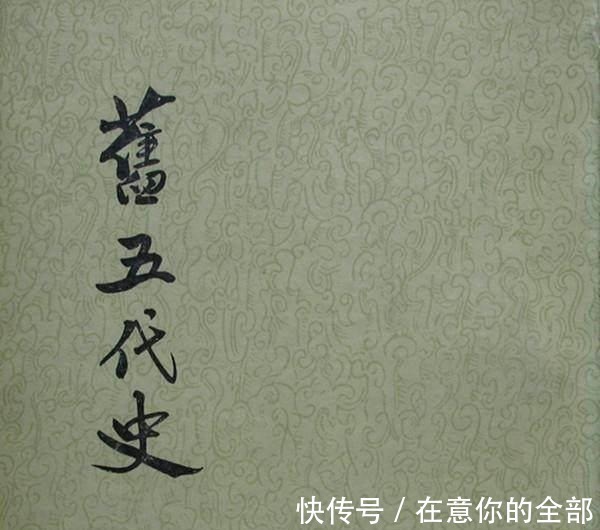 舊五代史
快传号 / 在意你的全部